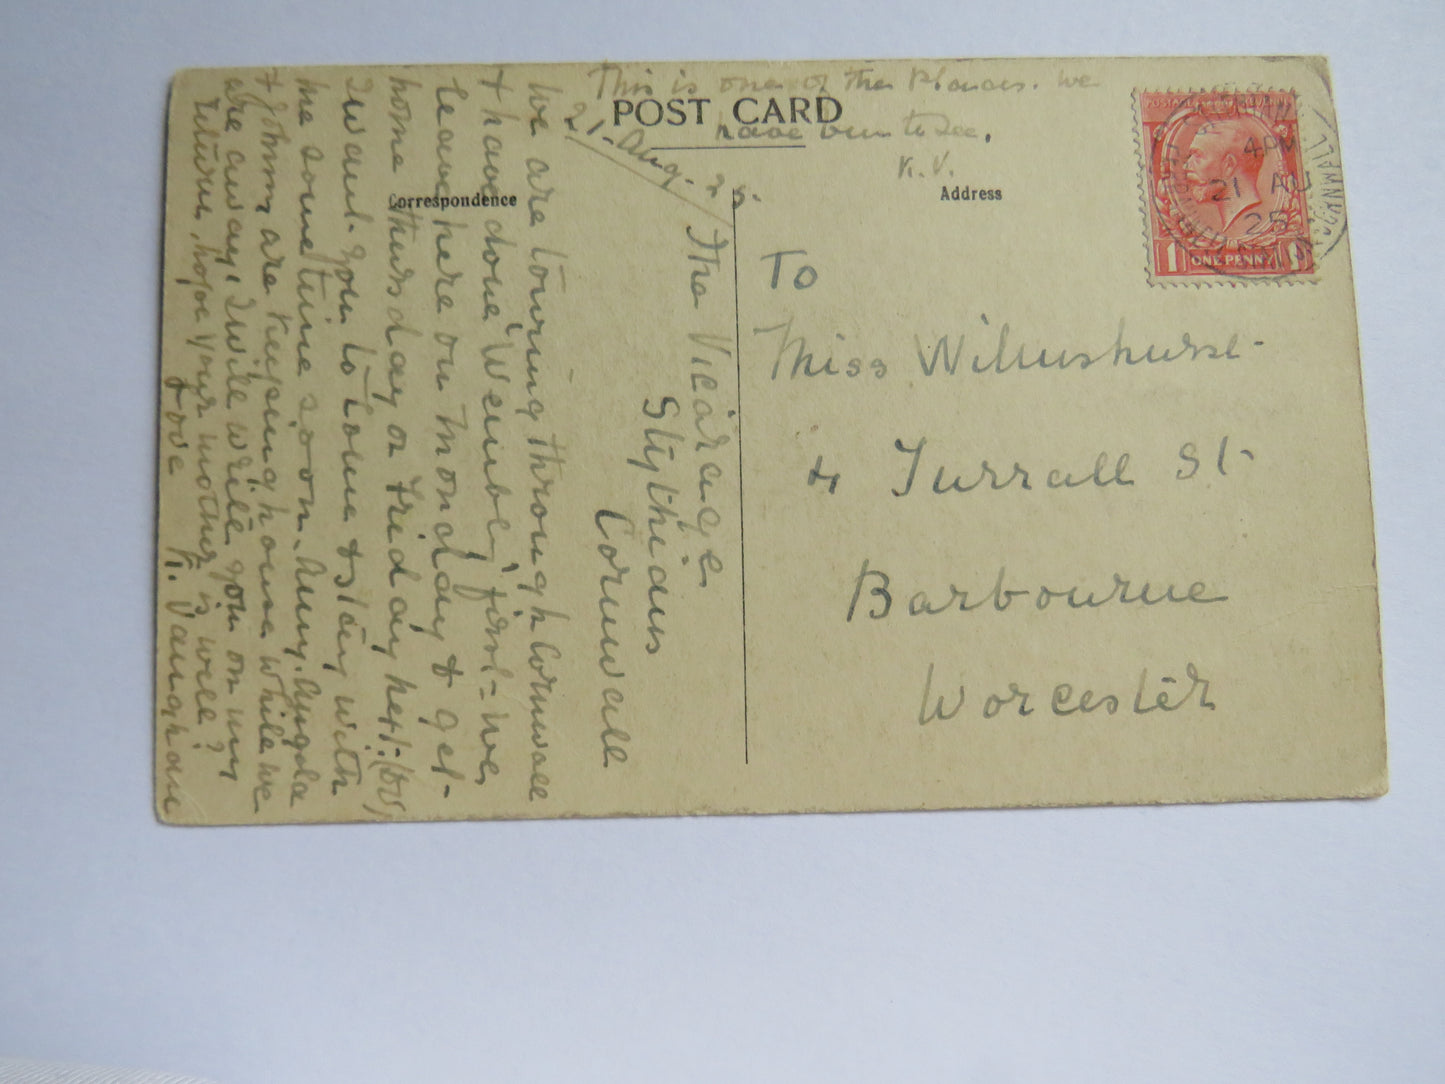 This is one of the Places. we
POST CARD
have been to see.
K. V.
Correspondence
Address
21. Aug. 25.
The Vicarage
Stythians
Cornwall
We are touring through Cornwall
& have done 'Wembley' first - we
leave here on Monday & get
home Thursday or Friday next. (DV)
I want you to come & stay with
me some time soon. Amy. Angela
& Johnny are keeping house while we
are away, I will write you on my
return, hope your mother is well?
Love K. Vaughan
To
Miss Wilmshurst
4 Turrall St
Barbourne
Worcester
POSTAGE REVENUE
1 ONE PENNY 1
4 PM
21 AU
25
CORNWALL